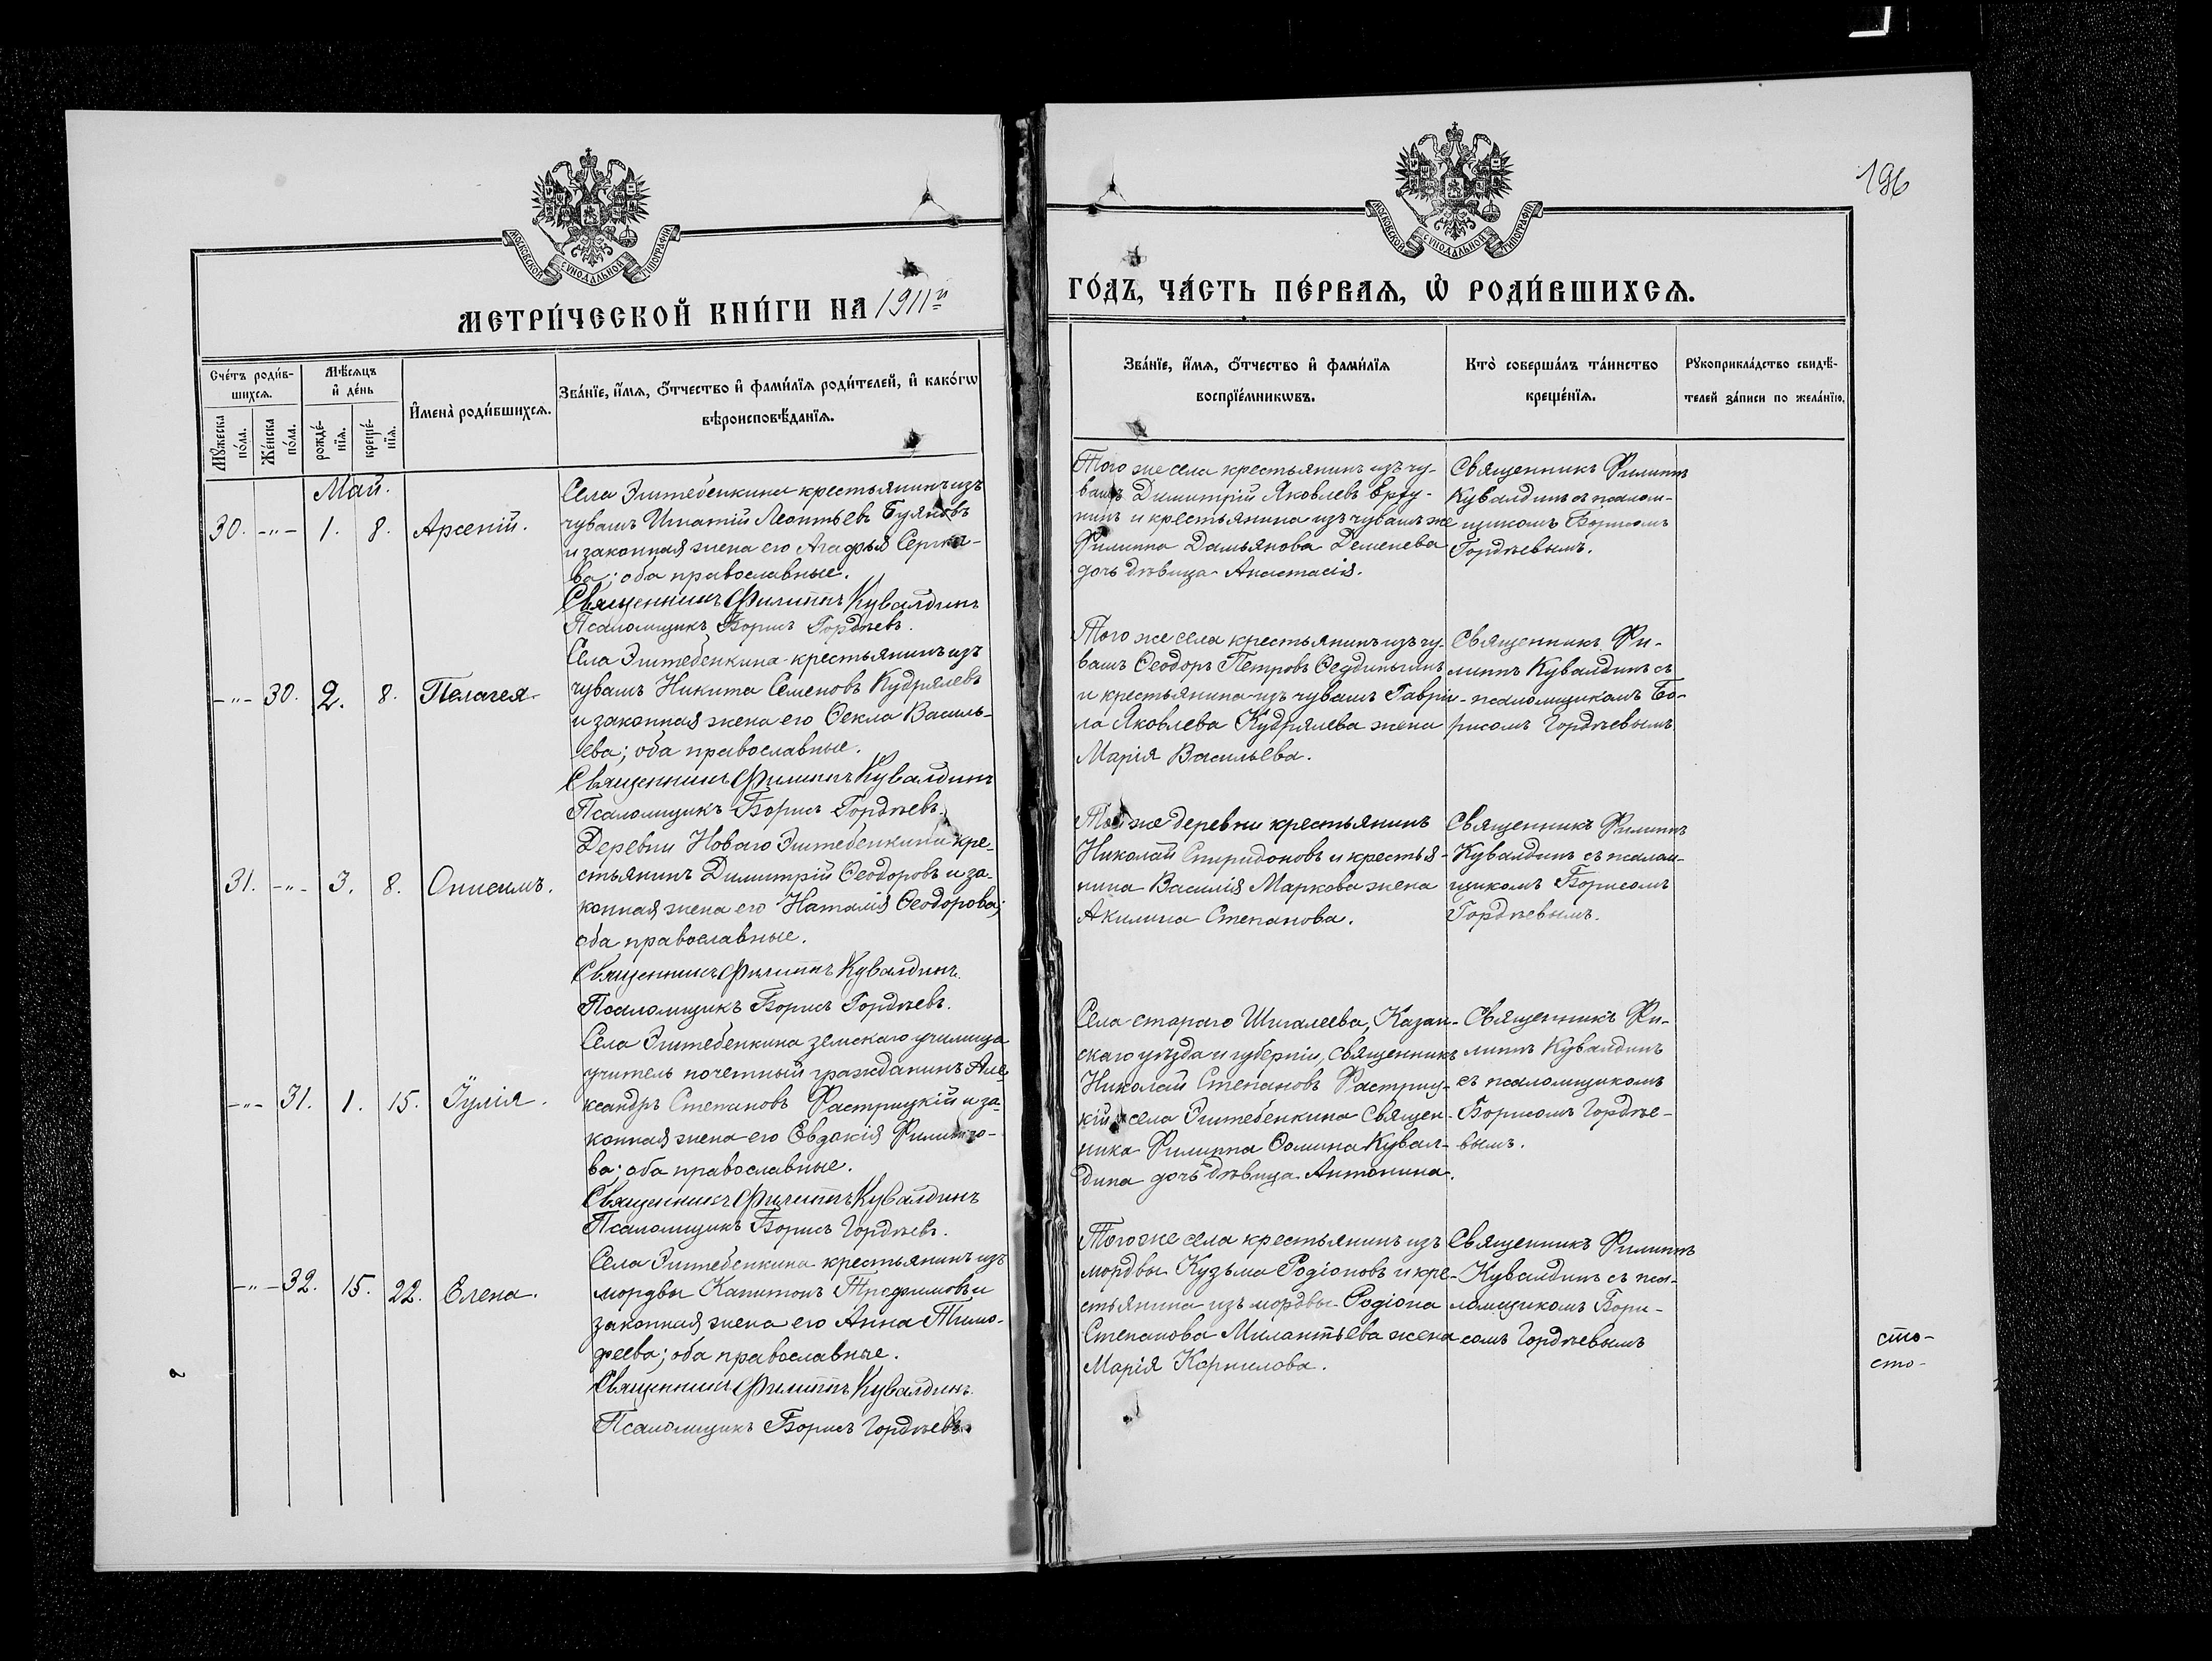 196
МОСКОВСКОЙ СѴНОДАЛЬНОЙ ТИПОГРАФІИ
МОСКОВСКОЙ СѴНОДАЛЬНОЙ ТИПОГРАФІИ
МЕТРИ́ЧЕСКОЙ КНИ́ГИ НА 1911й
ГО́ДЪ, ЧА́СТЬ ПЕ́РВАЯ, Ѡ РОДИ́ВШИХСЯ.
Сче́тъ роди́в-
шихся.
Мꙋ́жеска
по́ла.
Же́нска
по́ла.
Мѣ́сяцъ
и де́нь
рожде́-
нїя.
креще́-
нїя.
Имена̀ роди́вшихся.
Зва́нїе, и́мя, о́тчество и фами́лїя роди́телей, и како́гѡ
вѣроисповѣ́данїя.
Зва́нїе, и́мя, о́тчество и фами́лїя
воспрїе́мникѡвъ.
Кто̀ соверша́лъ та́инство
креще́нїя.
Рꙋкоприкла́дство свидѣ́-
телей за́писи по жела́нїю.
Май.
30. -"- 1. 8. Арсеній.
Села Эштебенкина крестьянинъ изъ
чувашъ Игнатій Леонтьевъ Буяновъ
и законная жена его Агафья Сергее-
ва; оба православные.
Священникъ Филиппъ Кувалдинъ
Псаломщикъ Борисъ Гордѣевъ.
Того же села крестьянинъ изъ чу-
вашъ Димитрій Яковлевъ
и крестьянина изъ чувашъ же
Филиппа Дамьянова Деменева
дочь дѣвица Анастасія.
Священникъ Филиппъ
Кувалдинъ съ псалом-
щикомъ Борисомъ
Гордѣевымъ.
-"- 30. 2. 8. Пелагея.
Села Эштебенкина крестьянинъ изъ
чувашъ Никита Семеновъ Кудрялевъ
и законная жена его Ѳекла Василь-
ева; оба православные.
Священникъ Филиппъ Кувалдинъ
Псаломщикъ Борисъ Гордѣевъ.
Того же села крестьянинъ изъ чу-
вашъ Ѳеодоръ Петровъ
и крестьянина изъ чувашъ Гаврiи-
ла Яковлева Кудрялева жена
Марія Васильева.
Священникъ Фи-
липпъ Кувалдинъ съ
псаломщикомъ Бо-
рисомъ Гордѣевымъ
31. -"- 3. 8. Онисимъ.
Деревни Новаго Эштебенкина кре-
стьянинъ Димитрій Ѳеодоровъ и за-
конная жена его Наталія Ѳеодорова;
оба православные.
Священникъ Филиппъ Кувалдинъ.
Псаломщикъ Борисъ Гордѣевъ.
Той же деревни крестьянинъ
Николай Спиридоновъ и крестья-
нина Василія Маркова жена
Акилина Степанова.
Священникъ Филиппъ
Кувалдинъ съ псалом-
щикомъ Борисомъ
Гордѣевымъ.
-"- 31. 1. 15. Іулія.
Села Эштебенкина земскаго училища
учитель почетный гражданинъ Але-
ксандръ Степановъ Растрицкій и за-
конная жена его Евдокія Филиппо-
ва; оба православные.
Священникъ Филиппъ Кувалдинъ
Псаломщикъ Борисъ Гордѣевъ.
Села стараго Шигалеева, Казан-
скаго уѣзда и губерніи, священникъ
Николай Степановъ Растриц-
кій и села Эштебенкина священ-
ника Филиппа Ѳомина Кувал-
дина дочь дѣвица Антонина.
Священникъ Фи-
липпъ Кувалдинъ
съ псаломщикомъ
Борисомъ Гордѣе-
вымъ.
-"- 32. 15. 22. Елена.
Села Эштебенкина крестьянинъ изъ
мордвы Капитонъ Трофимовъ и
законная жена его Анна Тимо-
феева; оба православные.
Священникъ Филиппъ Кувалдинъ.
Псаломщикъ Борисъ Гордѣевъ.
Того же села крестьянинъ изъ
мордвы Кузьма Родіоновъ и кре-
стьянина изъ мордвы Родіона
Степанова Милантьева жена
Марія Корнилова.
Священникъ Филиппъ
Кувалдинъ съ пса-
ломщикомъ Бори-
сомъ Гордѣевымъ
сто-
сто-